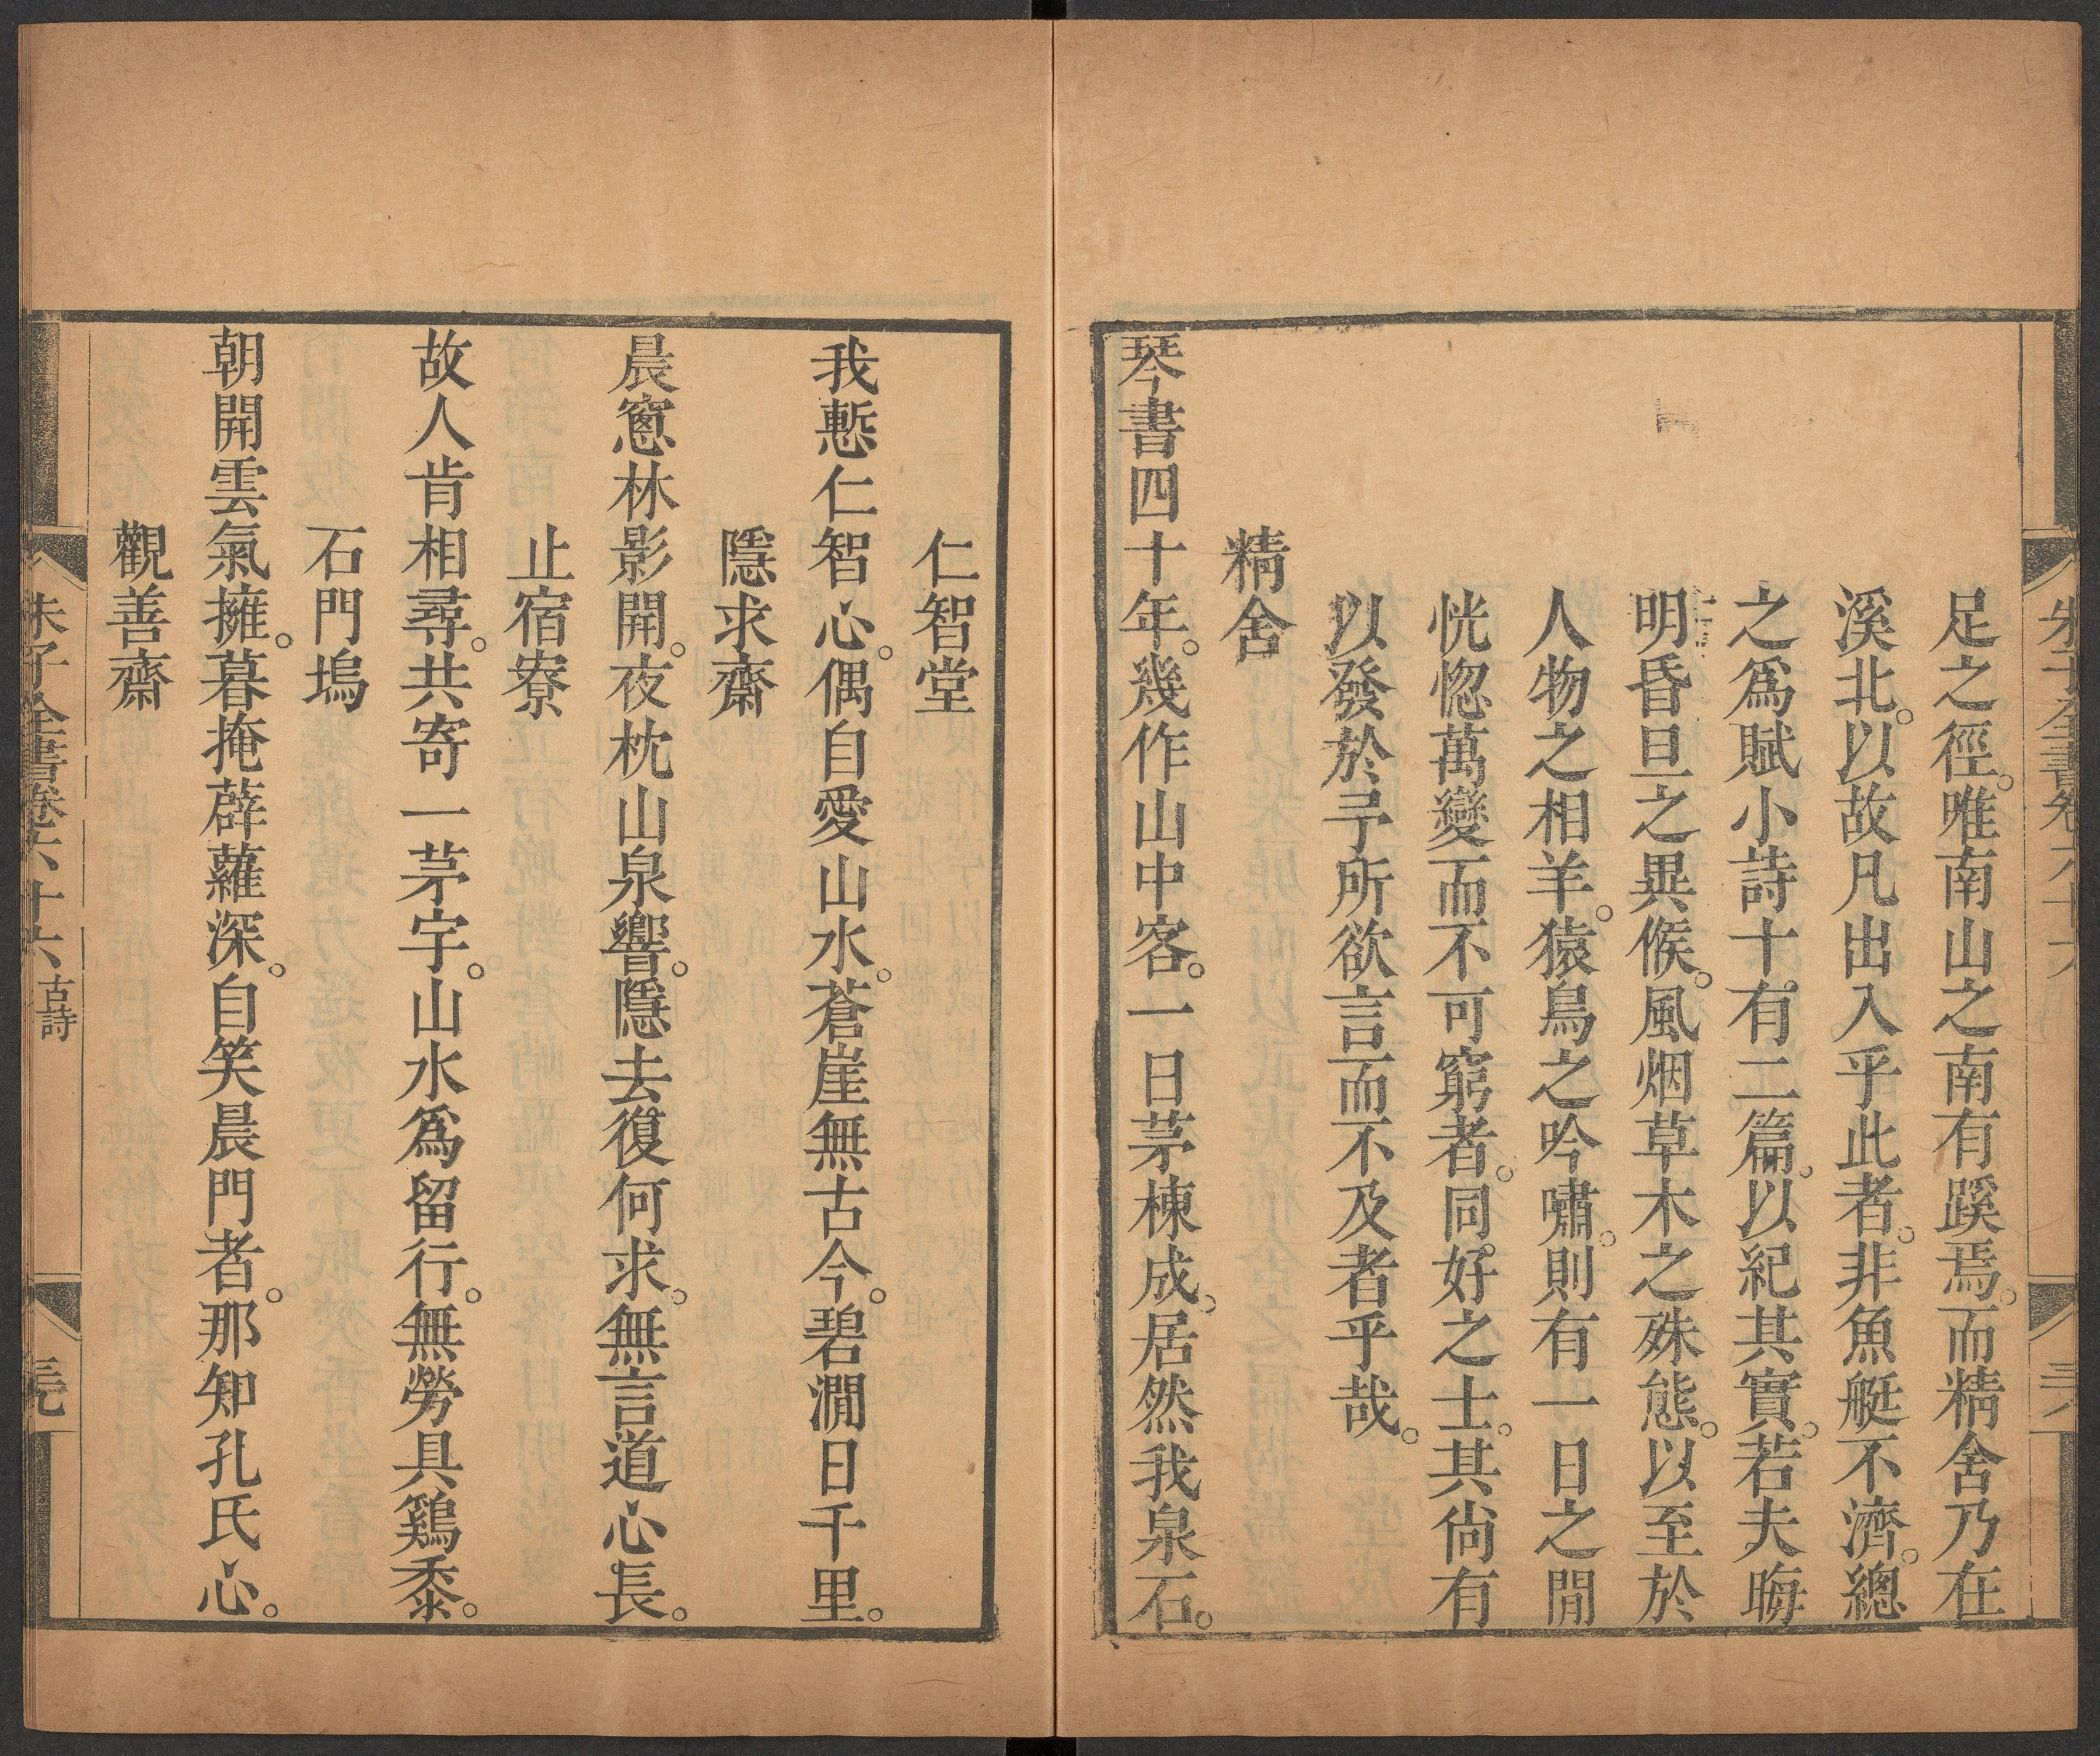 足之徑。唯南山之南有蹊焉。而精舍乃在
溪北。以故凡出入乎此者。非魚艇不濟。總
之爲賦小詩十。有二篇。以紀其實。若夫晦
明昏旦之異候。風烟草木之殊態。以至於
人物之相羊。猿鳥之吟嘯。則有一日之閒
恍惚萬變而不可窮者。同。好之士。其尙有
以發於予所欲言而不及者乎哉。
精舍
琴書四十年。幾作山中客。一日茅棟成。居然我泉石。
仁智堂
我慙仁智心。偶自愛山水。蒼崖無古今。碧澗日千里。
隱求齋
晨窻林影開。夜枕山泉響。隱去復何求。無言道心長。
止宿寮
故人肯相尋。共寄一茅宇。山水爲留行。無勞具鷄黍。
石門塢
朝開雲氣擁。暮掩薜蘿深。自笑晨門者。那知孔氏心。
觀善齋
朱子全書卷六十六 古詩